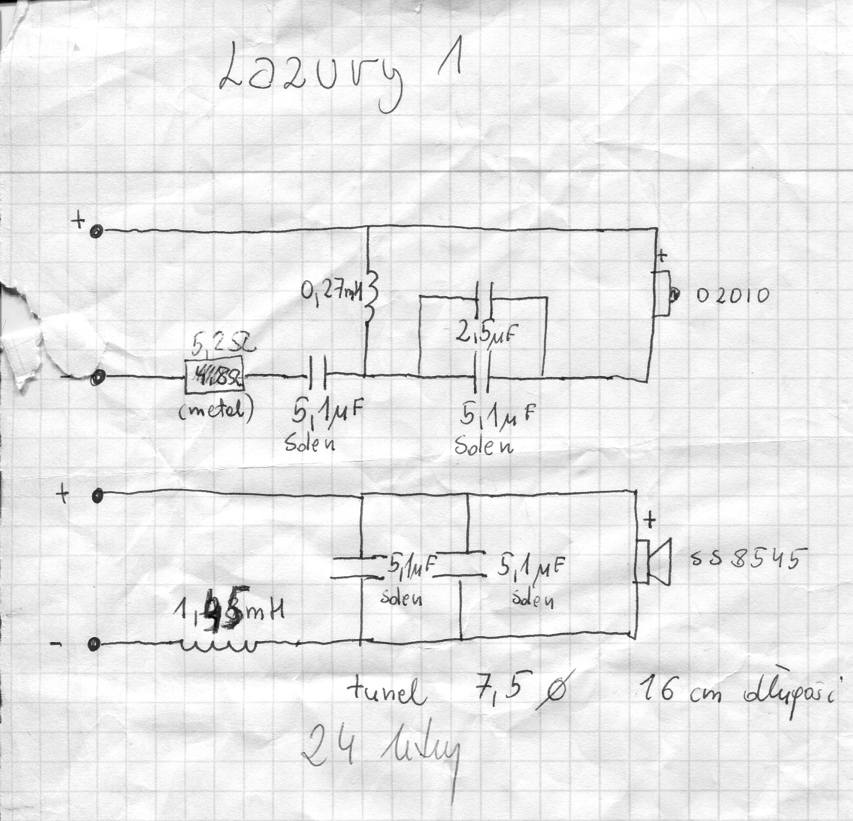 Lazury 1
+
0,27mH
+
02010
2,5μF
5,2Ω
4,8Ω
-
(metal)
5,1μF
Solen
5,1μF
Solen
+
+
5,1μF
Solen
5,1μF
Solen
SS 8545
mH
-
tunel 7,5 ø 16 cm długości
24 litry